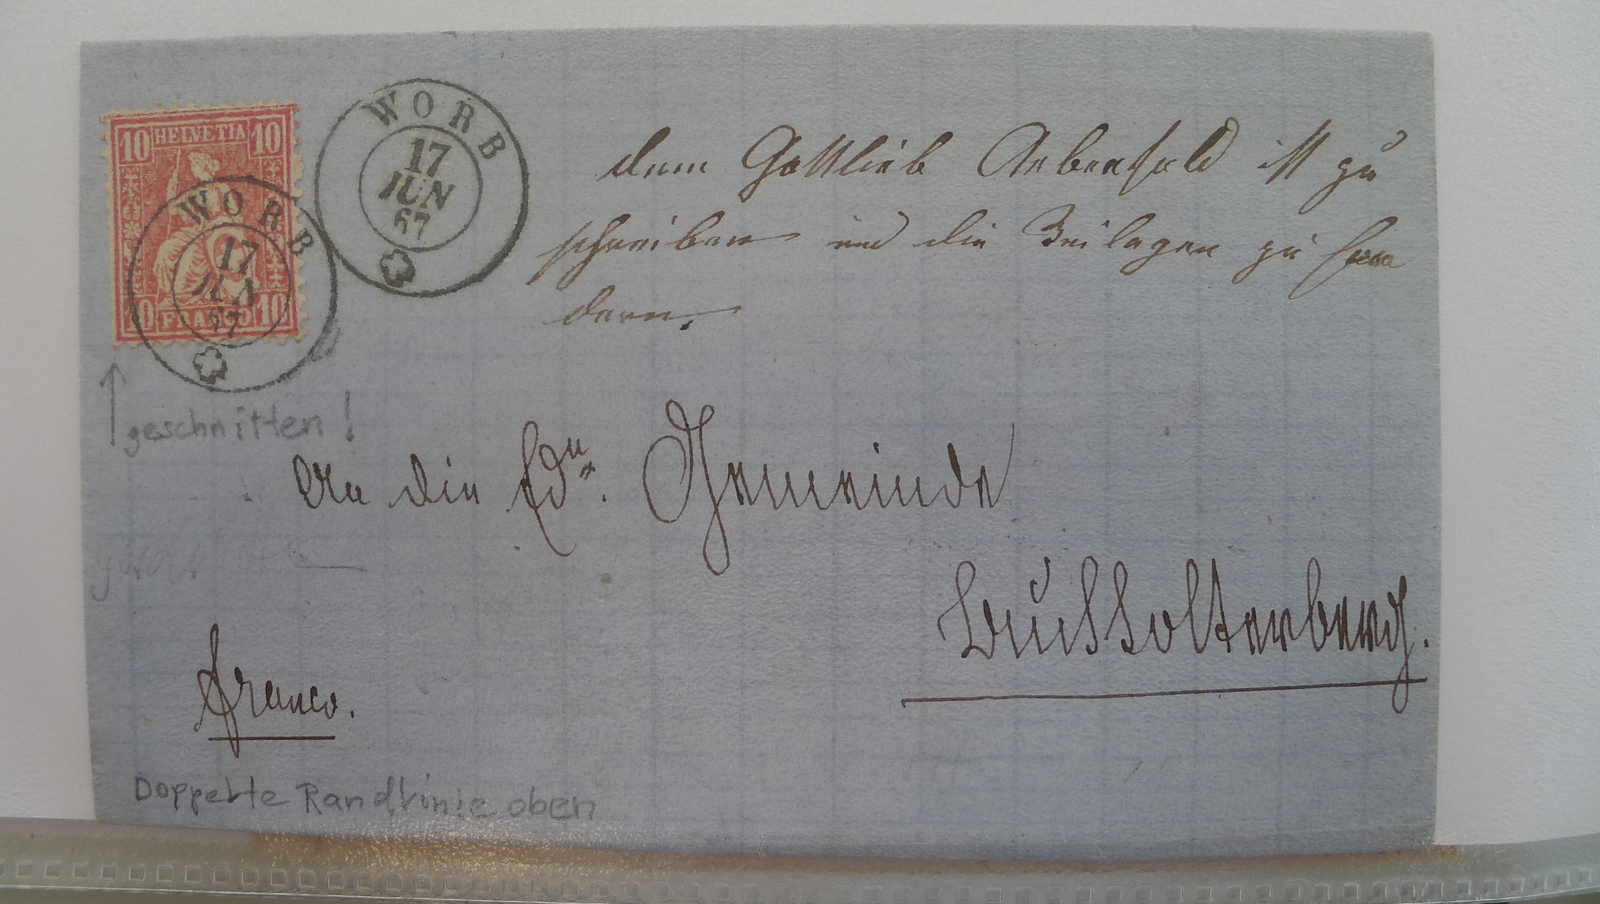 10 HELVETIA 10
10 FRANCO 10
WORB
17
JUN
67
WORB
17
JUN
67
dem Gottlieb Aebersold ist zu
schreiben und die Beilagen zu
geschnitten!
An die Ed. Gemeinde
Buchholterberg.
Franco.
Doppelte Randlinie oben